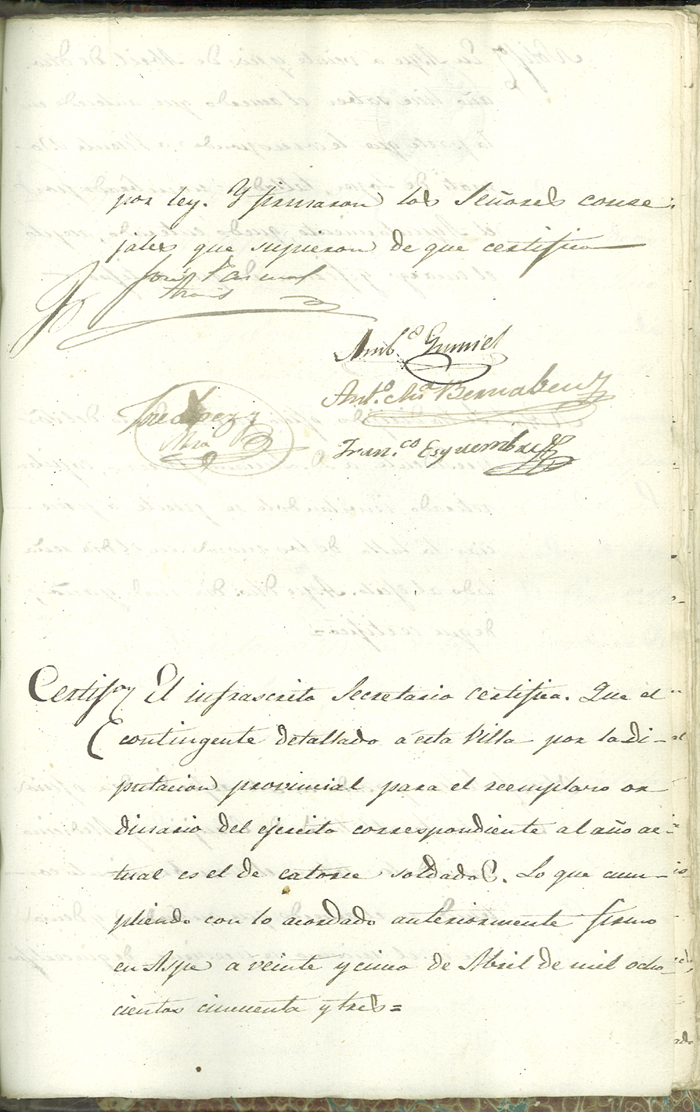 por ley. Y firmaron los Señores conce-
jales que supieron de que certifico
José Pascual
Amb.º Gumiel
Ant.º M.ª Bernabeu
José Lopez
Fran.co Esquembre
Certif.on El infrascrito Secretario certifica. Que el
contingente detallado a esta Villa por la di-
putacion provincial para el reemplazo or
dinario del ejercito correspondiente al año ac
tual es el de catorce soldados. Lo que cum-
pliendo con lo acordado anteriormente firmo
en Aspe a veinte y cinco de Abril de mil ocho
cientos cincuenta y tres=